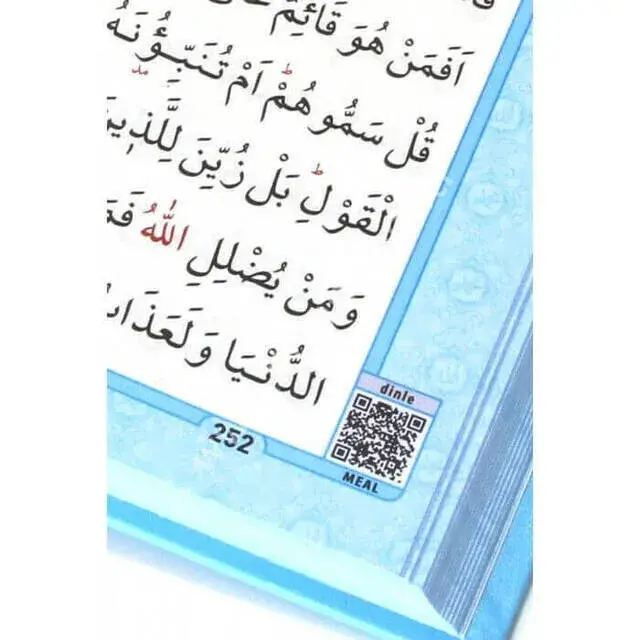 اَفَمَنْ هُوَ قَٓائِمٌ
قُلْ سَمُّوهُمْۜ اَمْ تُنَبِّؤُ۫نَهُ
الْقَوْلِۜ بَلْ زُيِّنَ لِلَّذ۪ينَ
وَمَنْ يُضْلِلِ اللّٰهُ
الدُّنْيَا وَلَعَذَابُ
dinle
252
MEAL